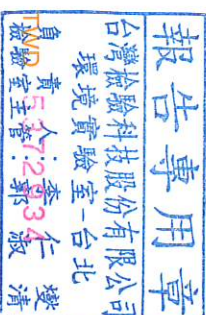 報告專用章
台灣檢驗科技股份有限公司
環境實驗室-台北
負責人:李仁燮
檢驗室主管:郭淑清
TWD 5372934